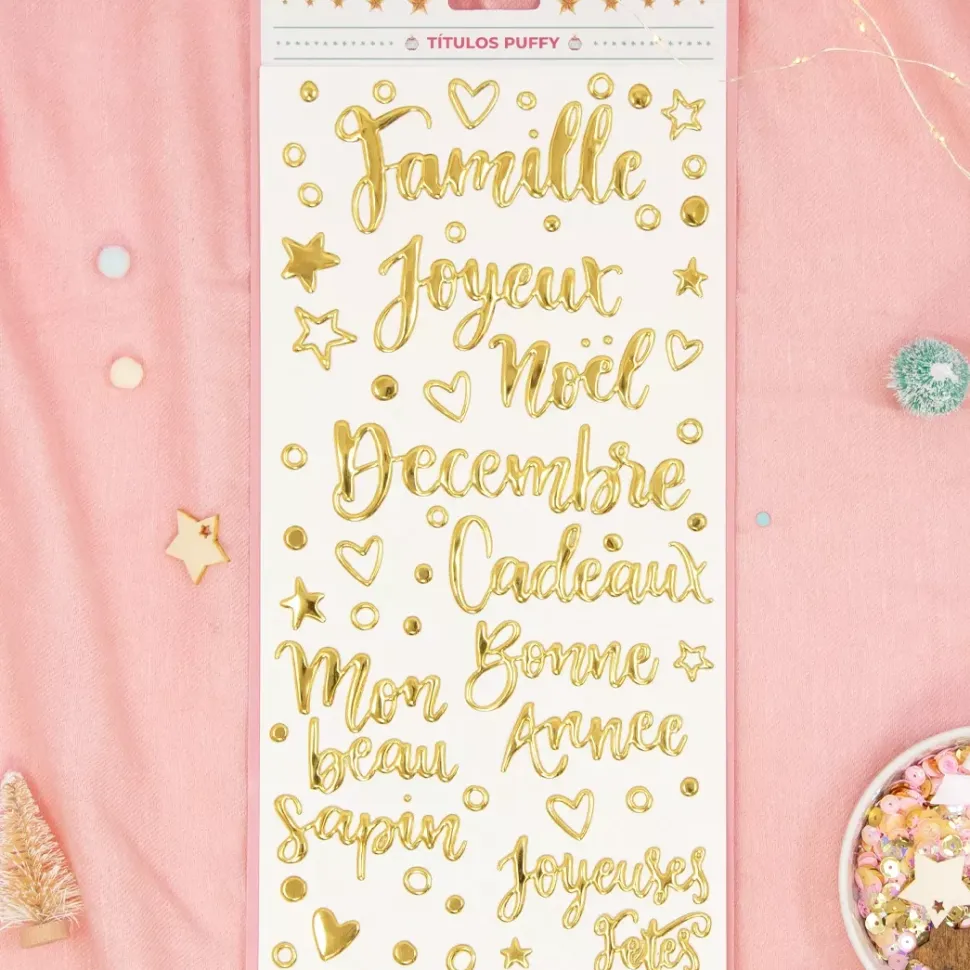 TÍTULOS PUFFY
Famille
Joyeux
Noël
Decembre
Cadeaux
Bonne
Annee
Mon
beau
sapin
Joyeuses
Fetes